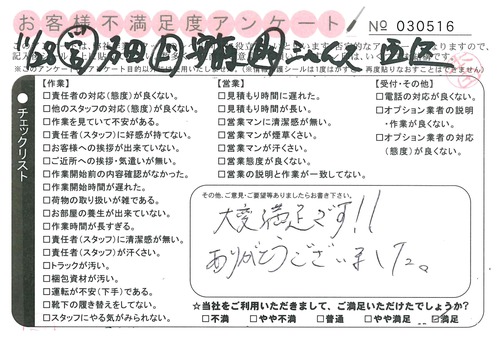 お客様不満足度アンケート
№ 030516
チェックリスト
【作業】
□責任者の対応(態度)が良くない。
□他のスタッフの対応(態度)が良くない。
□作業を見ていて不安がある。
□責任者(スタッフ)に好感が持てない。
□お客様への挨拶が出来ていない。
□ご近所への挨拶・気遣いが無い。
□作業開始前の内容確認がなかった。
□作業開始時間が遅れた。
□荷物の取り扱いが雑である。
□お部屋の養生が出来ていない。
□作業時間が長すぎる。
□責任者(スタッフ)に清潔感が無い。
□責任者(スタッフ)が汗くさい。
□トラックが汚い。
□梱包資材が汚い。
□運転が不安(下手)である。
□靴下の履き替えをしてない。
□スタッフにやる気がみられない。
【営業】
□見積もり時間に遅れた。
□見積もり時間が長い。
□営業マンに清潔感が無い。
□営業マンが煙草くさい。
□営業マンが汗くさい。
□営業態度が良くない。
□営業の説明と作業が一致してない。
【受付・その他】
□電話の対応が良くない。
□オプション業者の説明・作業が良くない。
□オプション業者の対応(態度)が良くない。
その他、ご意見・ご要望等ありましたらお書き下さい。
大変満足です!!
ありがとうございました。
☆当社をご利用いただきまして、ご満足いただけたでしょうか?
□不満 □やや不満 □普通 □やや満足 ☑満足